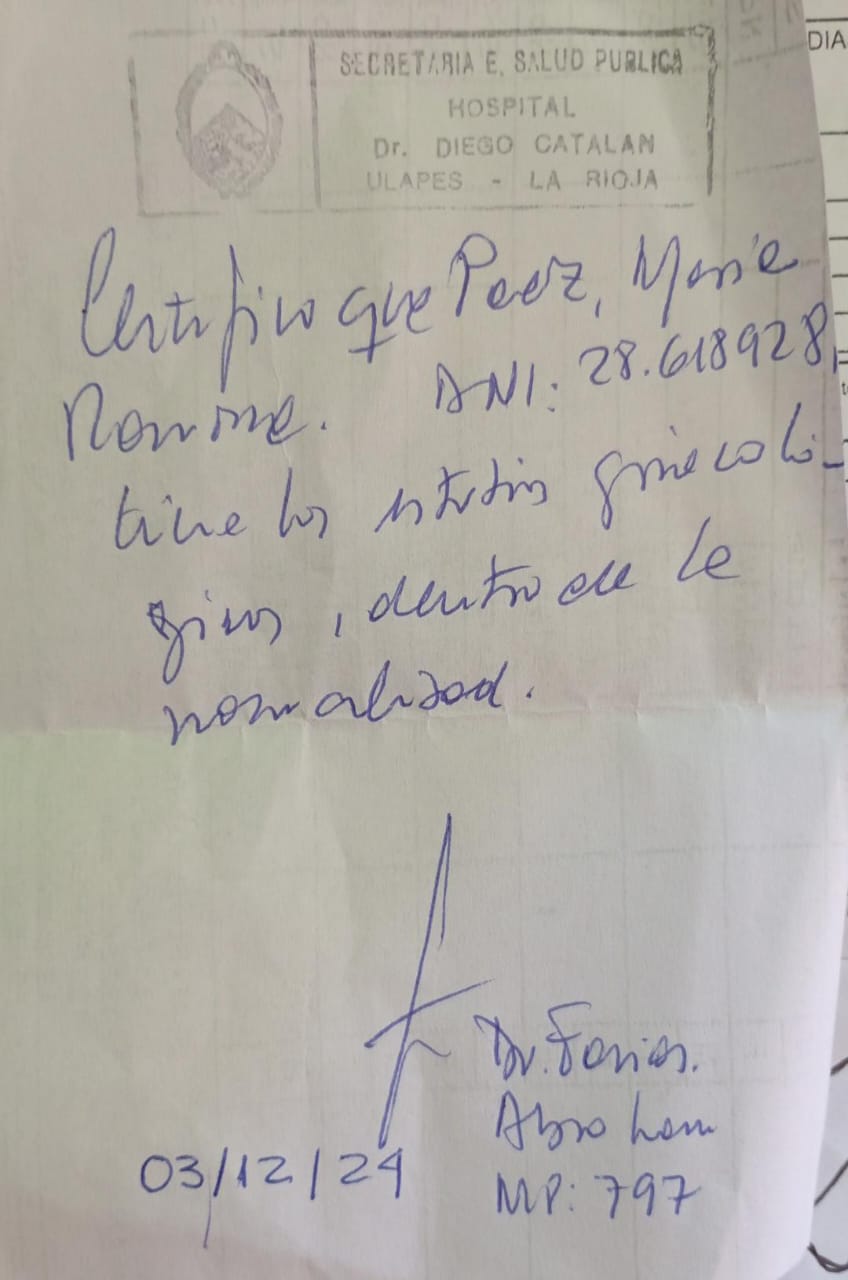 SECRETARIA E. SALUD PUBLICA
HOSPITAL
Dr. DIEGO CATALAN
ULAPES - LA RIOJA
DIA
Certifico que Paez, Maria
Romina. DNI: 28.618928,
tiene los estudios ginecoló-
gicos, dentro de la
normalidad.
Dr. Farias.
Abraham
03/12/24
MP: 797